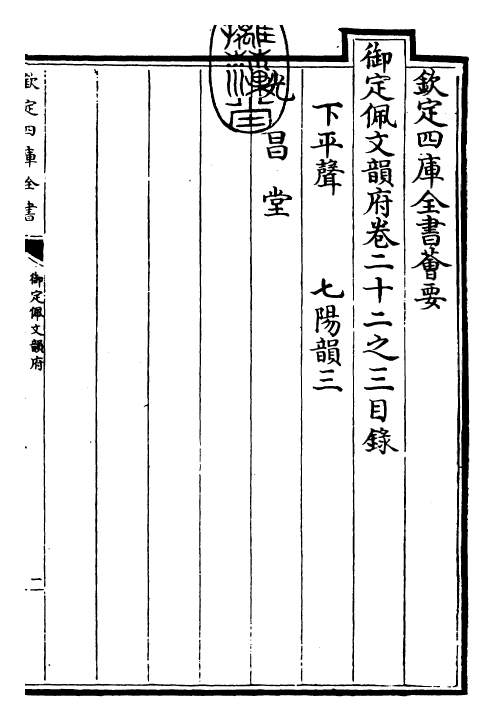 欽定四庫全書薈要
御定佩文韻府卷二十二之三目錄
下平聲 七陽韻三
光昌堂
欽定四庫全書
御定佩文韻府
二